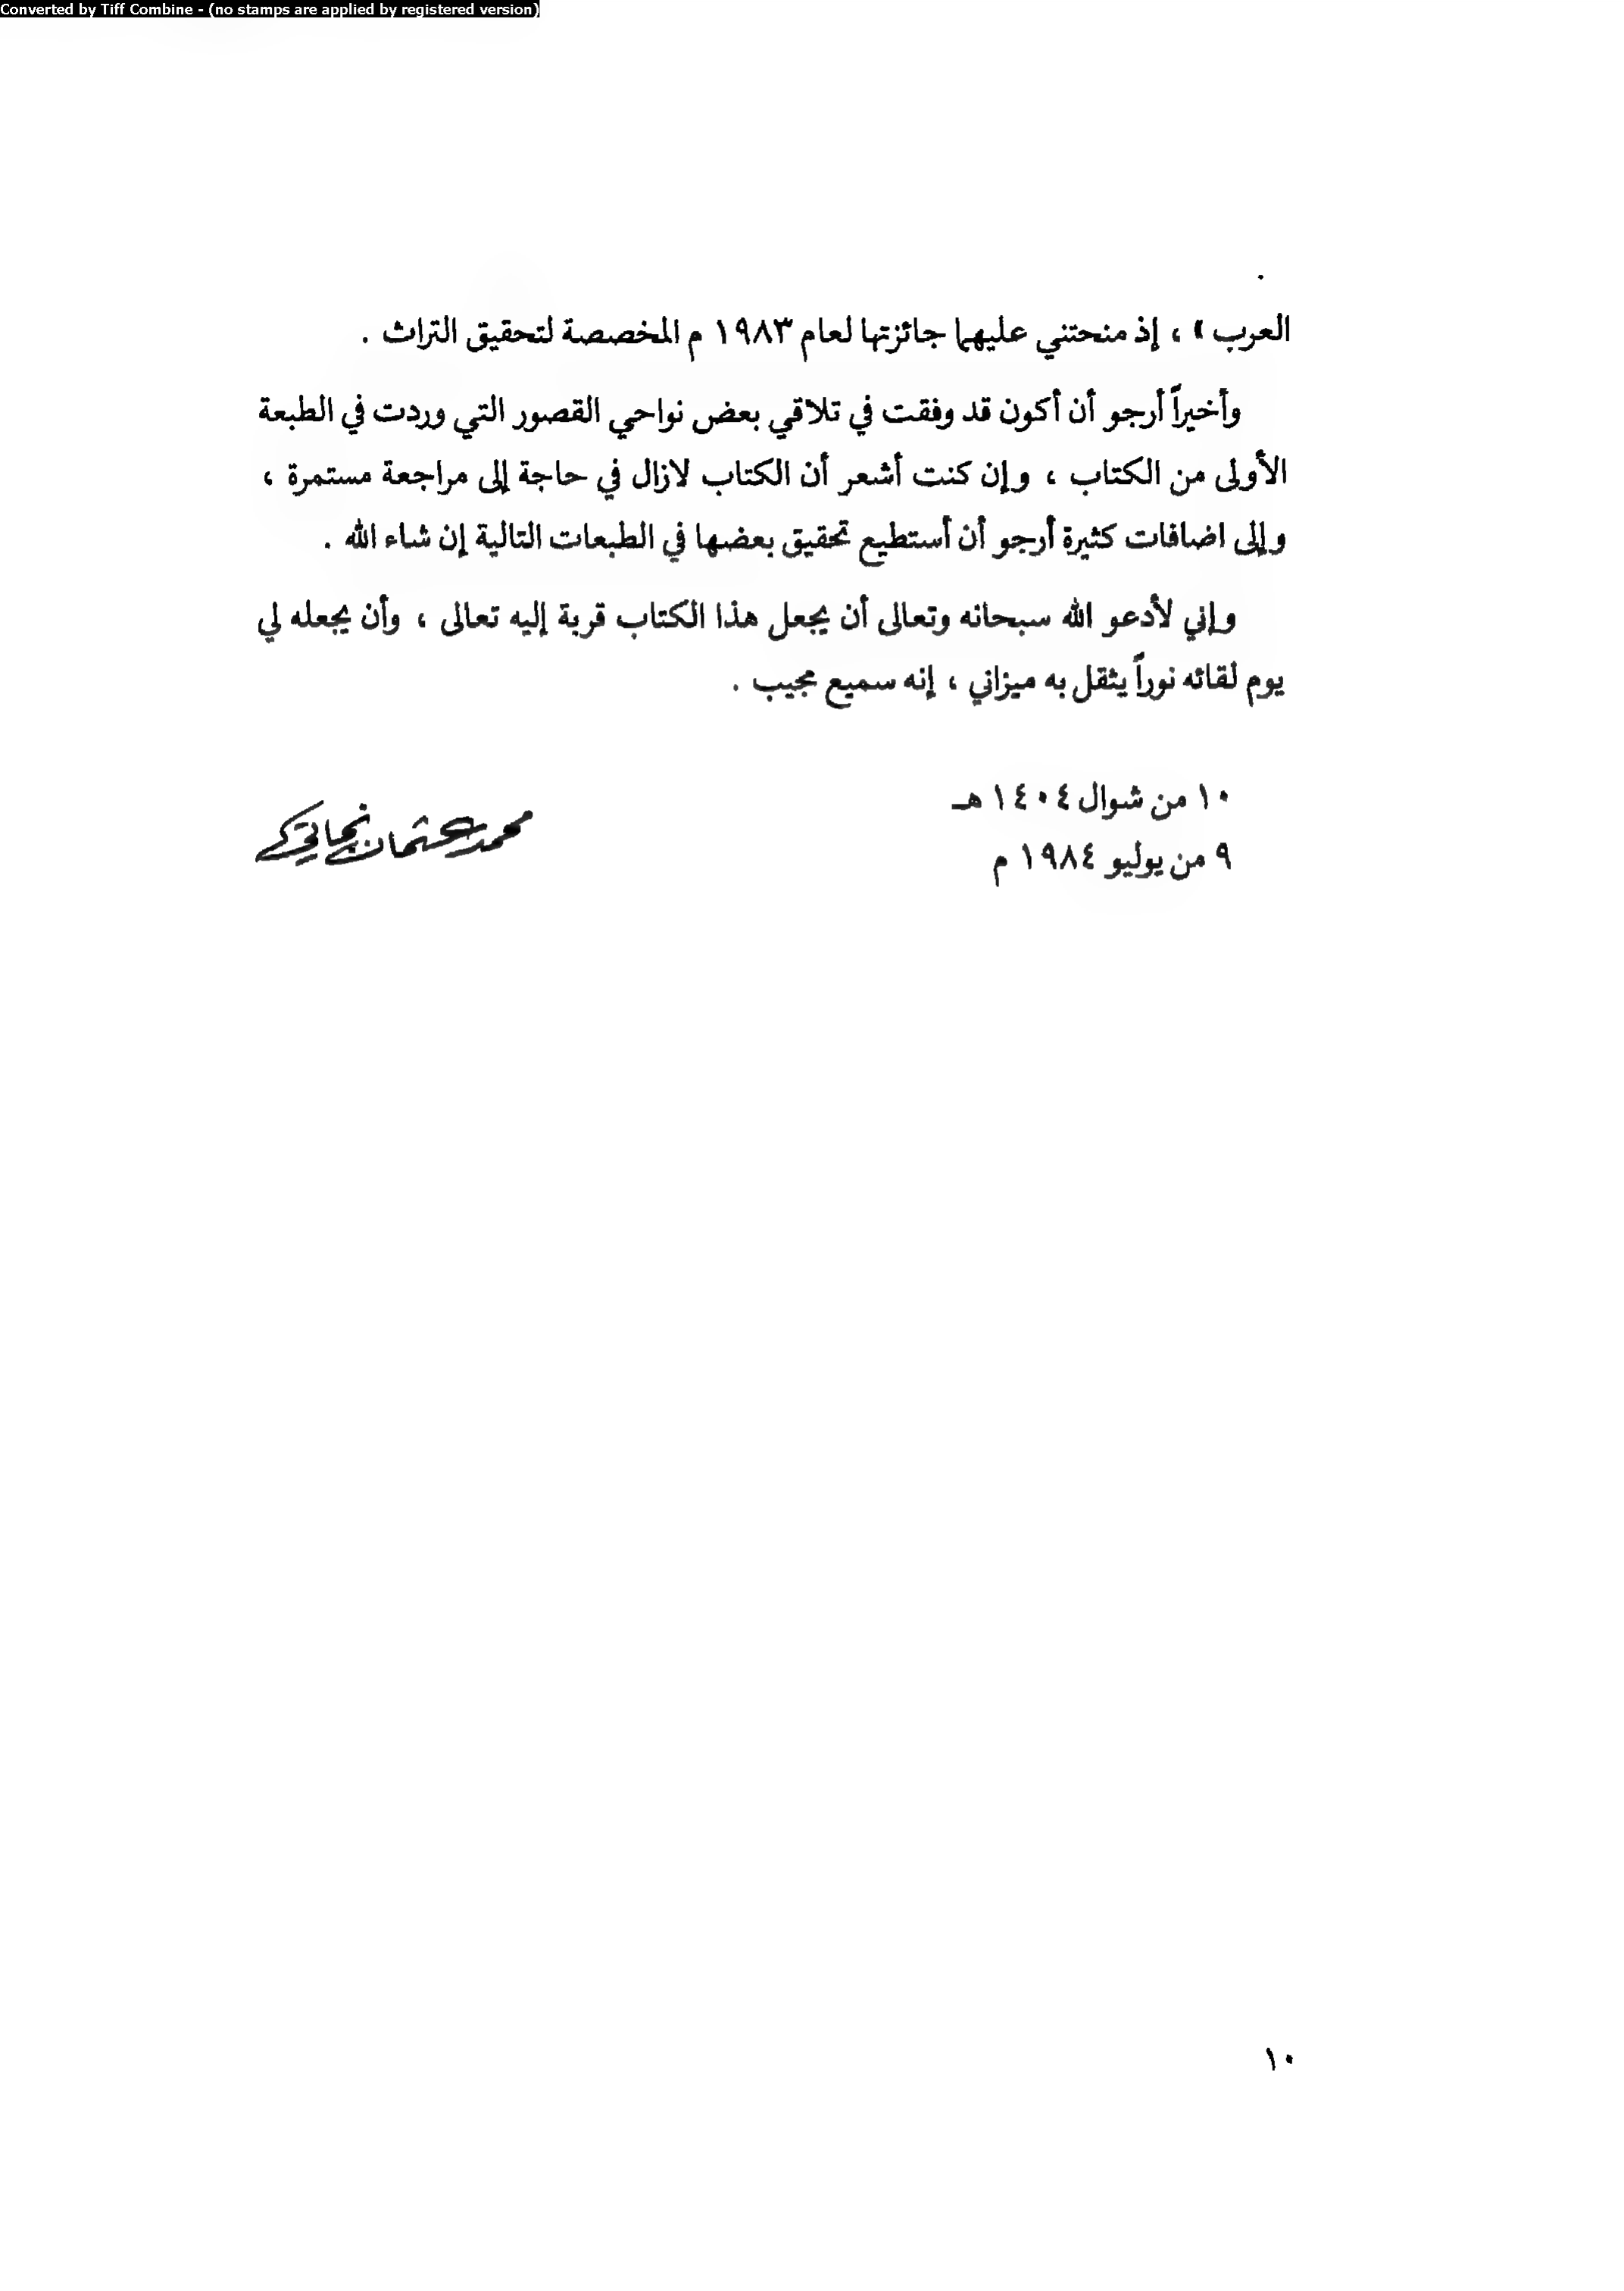 Converted by Tiff Combine - (no stamps are applied by registered version)
العرب » ، إذ منحتني عليهما جائزتها لعام ١٩٨٣ م المخصصة لتحقيق التراث .
وأخيراً أرجو أن أكون قد وفقت في تلاقي بعض نواحي القصور التي وردت في الطبعة
الأولى من الكتاب ، وإن كنت أشعر أن الكتاب لازال في حاجة إلى مراجعة مستمرة ،
وإلى اضافات كثيرة أرجو أن أستطيع تحقيق بعضها في الطبعات التالية إن شاء الله .
وإني لأدعو الله سبحانه وتعالى أن يجعل هذا الكتاب قربة إليه تعالى ، وأن يجعله لي
يوم لقائه نوراً يثقل به ميزاني ، إنه سميع مجيب .
١٠ من شوال ١٤٠٤ هـ
محمد عثمان نجاتي
٩ من يوليو ١٩٨٤ م
١٠